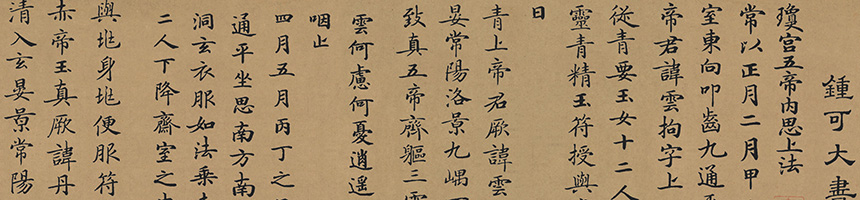 鍾可大書
瓊宮五帝內思上法
常以正月二月甲
室東向叩齒九通平
帝君諱雲拘字上
從青要玉女十二人
靈青精玉符授與
日
青上帝君厥諱雲
晏常陽洛景九嵎
致真五帝齊軀三雲
雲何慮何憂逍遥
咽止
四月五月丙丁之
通平坐思南方南
洞玄衣服如法乘
二人下降齋室之
與兆身兆便服符
赤帝玉真厥諱丹
清入玄晏景常陽